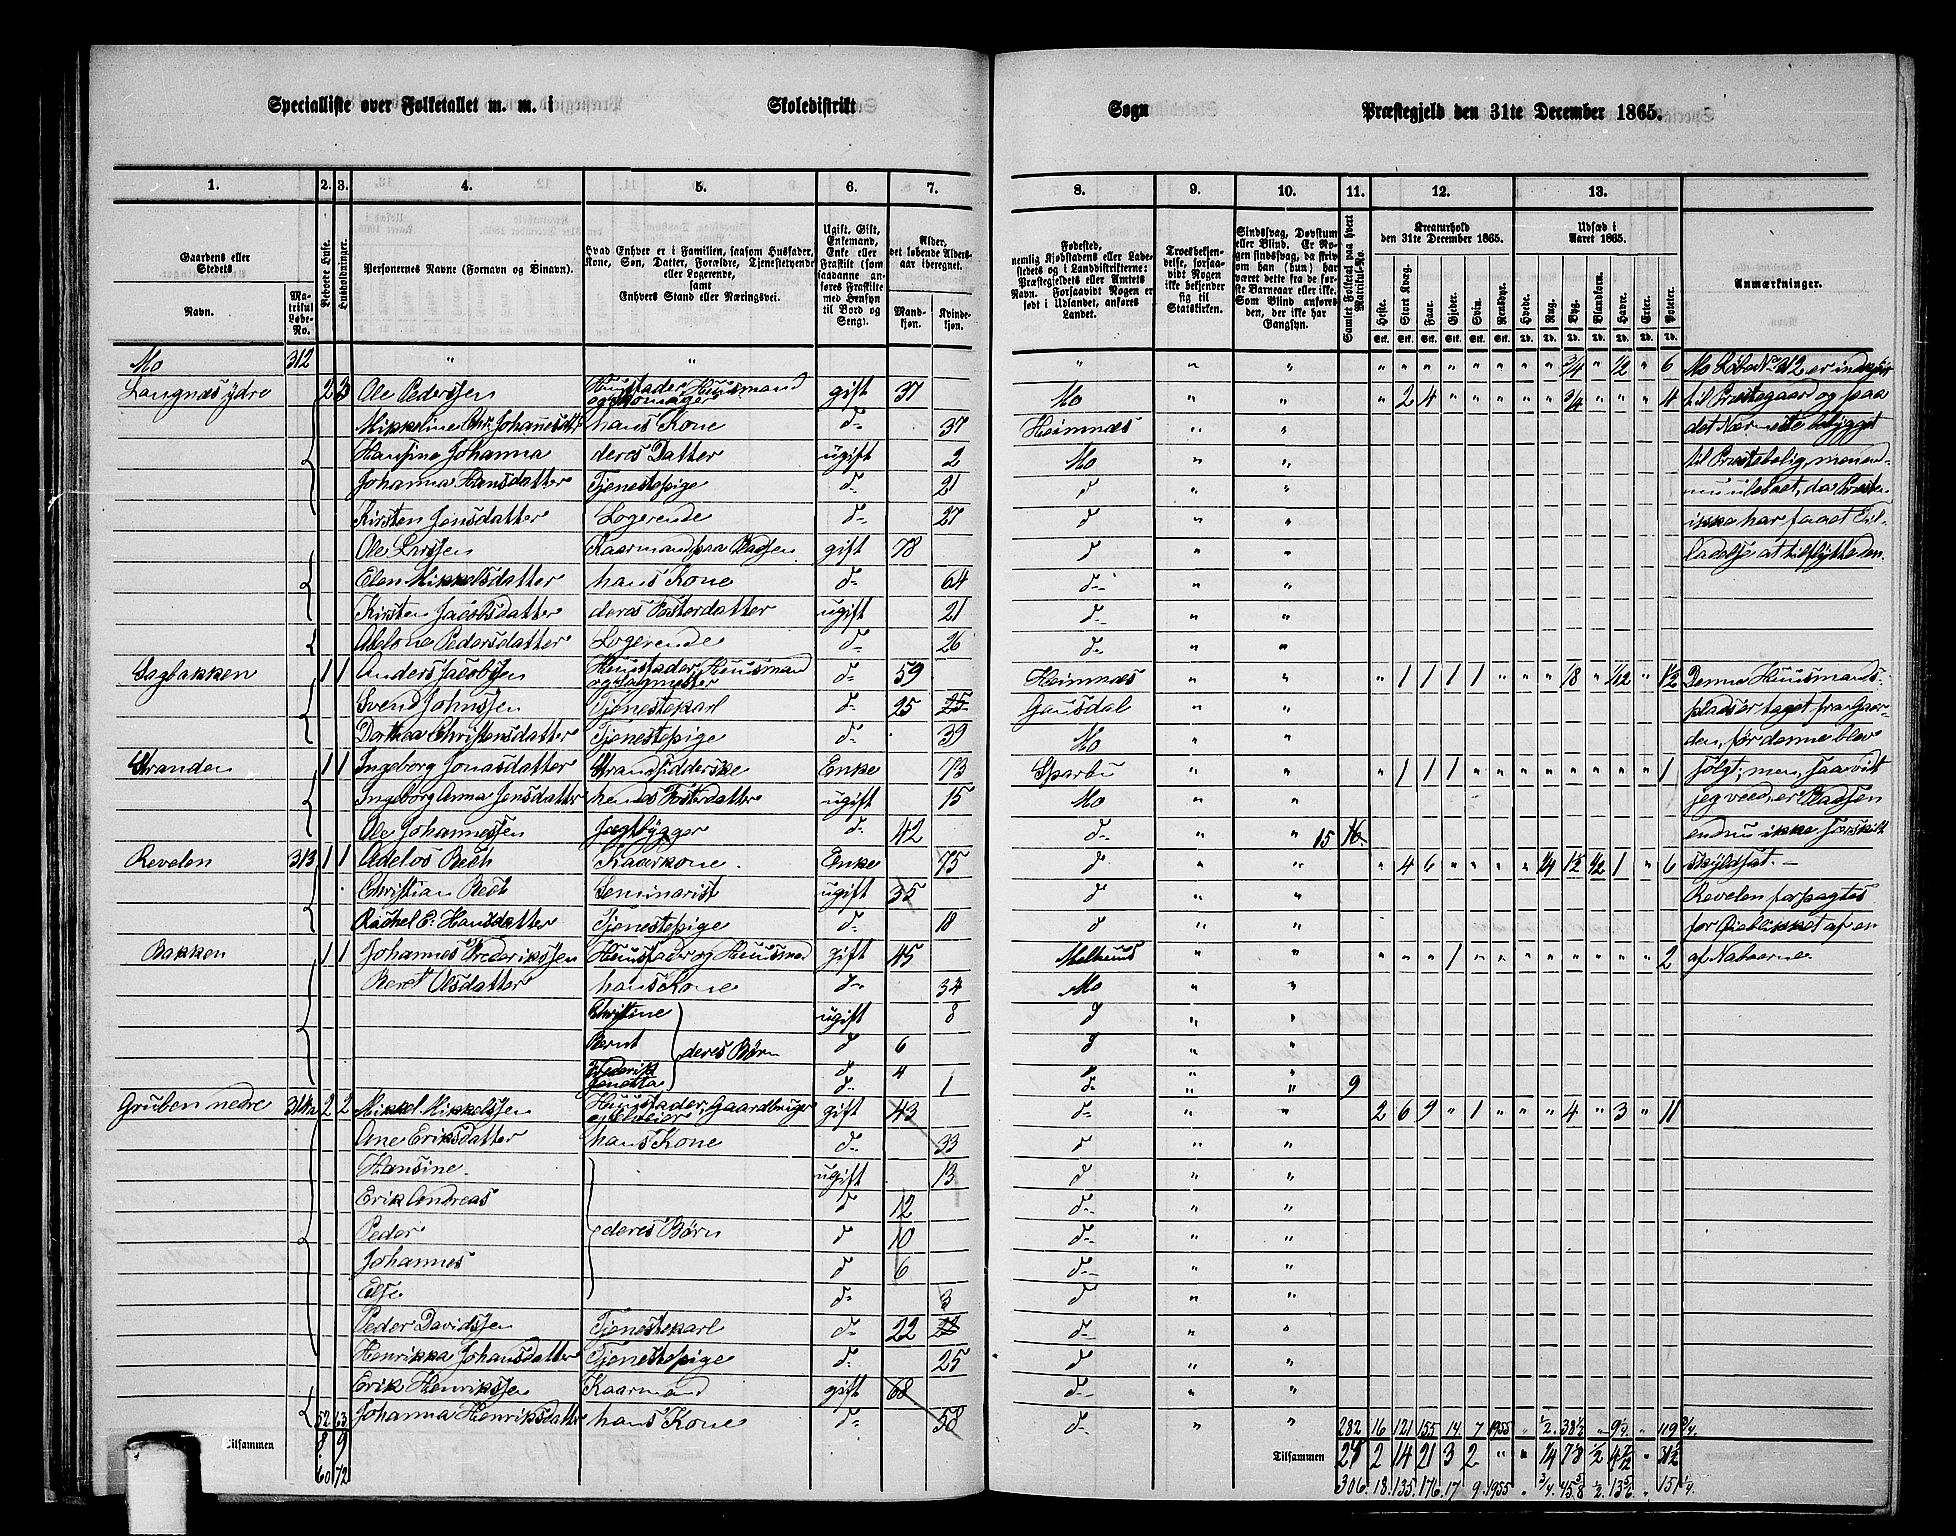 Specialliste over Folketallet m. m. i Skoledistrikt Sogn Præstegjeld den 31te December 1865.
1. 2. 3. 4. 5. 6. 7. 8. 9. 10. 11. 12. 13.
Gaardens eller Stedets
Navn.
Matrikul Løbe-No.
Beboede Huse.
Husholdninger.
Personernes Navne (Fornavn og Binavn).
Hvad Enhver er i Familien, saasom Husfader, Kone, Søn, Datter, Forældre, Tjenestetyende eller Logerende, samt Enhvers Stand eller Næringsvei.
Ugift, Gift, Enkemand, Enke eller Fraskilt (som saadanne anføres Fraskilte med Hensyn til Bord og Seng).
Alder, det løbende Alders-aar iberegnet.
Mandkjøn.
Kvindekjøn.
Fødested, nemlig Kjøbstadens eller Ladestedets og i Landdistrikterne: Præstegjeldets eller Amtets Navn. Forsaavidt Nogen er født i Udlandet, anføres Landet.
Troesbekjendelse, forsaavidt Nogen ikke bekjender sig til Statskirken.
Sindssvag, Døvstum eller Blind. Er Nogen sindssvag, da skrives om han (hun) har været dette fra de første Barneaar eller ikke. Som Blind anføres den, der ikke har Gangsyn.
Samlet Folketal paa hvert Matrikul-No.
Kreaturhold den 31te December 1865.
Heste. Stort Kvæg. Faar. Gjeder. Svin. Rensdyr.
Udsæd i Aaret 1865.
Hvede. Rug. Byg. Blandkorn. Havre. Erter. Poteter.
Anmærkninger.
Mo 312 " " " " " " " " " " " " " 3/4 " 1/2 " 6 Mo Løbe No 312 er indkjøbt
Langnæs ydre 2 3 Ole Pederssen Huusfader, Huusmand gift 37 Mo " " " 2 4 " " " " " 3/4 " " " 4 til Præstegaard og paa
Mikkeline Chr. Johanesdtr hans Kone d- 37 Hemnæs " " det Nærmeste bebygget
Hansine Johanna deres Datter ugift 2 Mo " " til Præstebolig men end-
Johanna Hansdatter Tjenestepige d- 21 d " " nu ubeboet, da Præsten
Kirsten Jensdatter Logerende d- 27 d " " ikke har faaet Til-
Ole Larssen Kaarmand paa Pladsen gift 78 d " " ladelse at tilflytte den.
Elen Mikkelsdatter hans Kone d- 64 d- " "
Kirsten Jacobsdatter deres Fosterdatter ugift 21 d- " "
Abelone Pedersdatter Logerende d- 26 d- " "
Sagbakken 1 1 Anders Jacobssen Huusfader, Huusmand og Sagmester d- 59 Hemnæs " " " 1 1 1 1 " " " 1/8 " 1/12 " 1 1/2 Denne Huusmands-
Svend Johnssen Tjenestekarl d- 25 25 Gausdal " " plads er taget fra Gaar-
Dorthea Christensdatter Tjenestepige d- 39 Mo " " den, før denne blev
Stranden 1 1 Ingeborg Jonasdatter Strandsidderske Enke 73 Sparbu " " " 1 1 1 " " " " " " " " 1 solgt; men, saavidt
Ingeborg Anna Jensdatter hendes Fosterdatter ugift 15 Mo " " jeg veed, er Pladsen
Ole Johannessen Jægtbygger d- 42 d- " " 15 16 endnu ikke særskilt
Revelen 313 1 1 Adelos Bech Kaarkone Enke 75 d " " " 4 6 " " " " 1/4 1 3/8 1/2 1 " 6 skyldsat. –
Christian Bech Seminarist ugift 35 d " " Revelen forpagtes
Rachel E. Hansdatter Tjenestepige d- 18 d " " for Øieblikket af en
Bakken 1 1 Johannes Frederikssen Huusfader og Huusmand gift 45 Melhuus " " " " " 1 " " " " " " " " 2 af Naboerne
Beret Olsdatter hans Kone d- 34 Mo " "
Christine ugift 8 d " "
Bernt deres Børn d 6 d " "
Frederik d 4 d " "
Jonetta d- 1 d- " " 9
Gruben nedre 314a 2 2 Mikkel Mikkelssen Huusfader, Gaardbruger og Selveier gift 43 d- " " 2 6 9 " 1 " " " 4 " 3 " 11
Ane Eriksdatter hans Kone d- 33 d " "
Hansine ugift 13 d " "
Erik Andreas d 12 d- " "
Peder deres Børn d 10 d- " "
Johannes d 6 d- " "
Else d- 3 d " "
Peder Davidssen Tjenestekarl d- 22 22 d- " "
Henrikka Johansdatter Tjenestepige d- 25 d " "
Erik Henrikssen Kaarmand gift 68 d- " "
52 63 Johanna Henriksdatter hans Kone d- 58 d- " " 282 16 121 155 14 7 1955 " 1/2 38 1/2 " 9 1/4 " 119 3/4
Tilsammen 8 9 Tilsammen 24 2 14 21 3 2 " " 1/4 7 1/8 1/2 4 7/12 " 31 1/2
60 72 306 18 135 176 17 9 1955 " 3/4 45 5/8 1/2 13 5/6 " 151 1/4